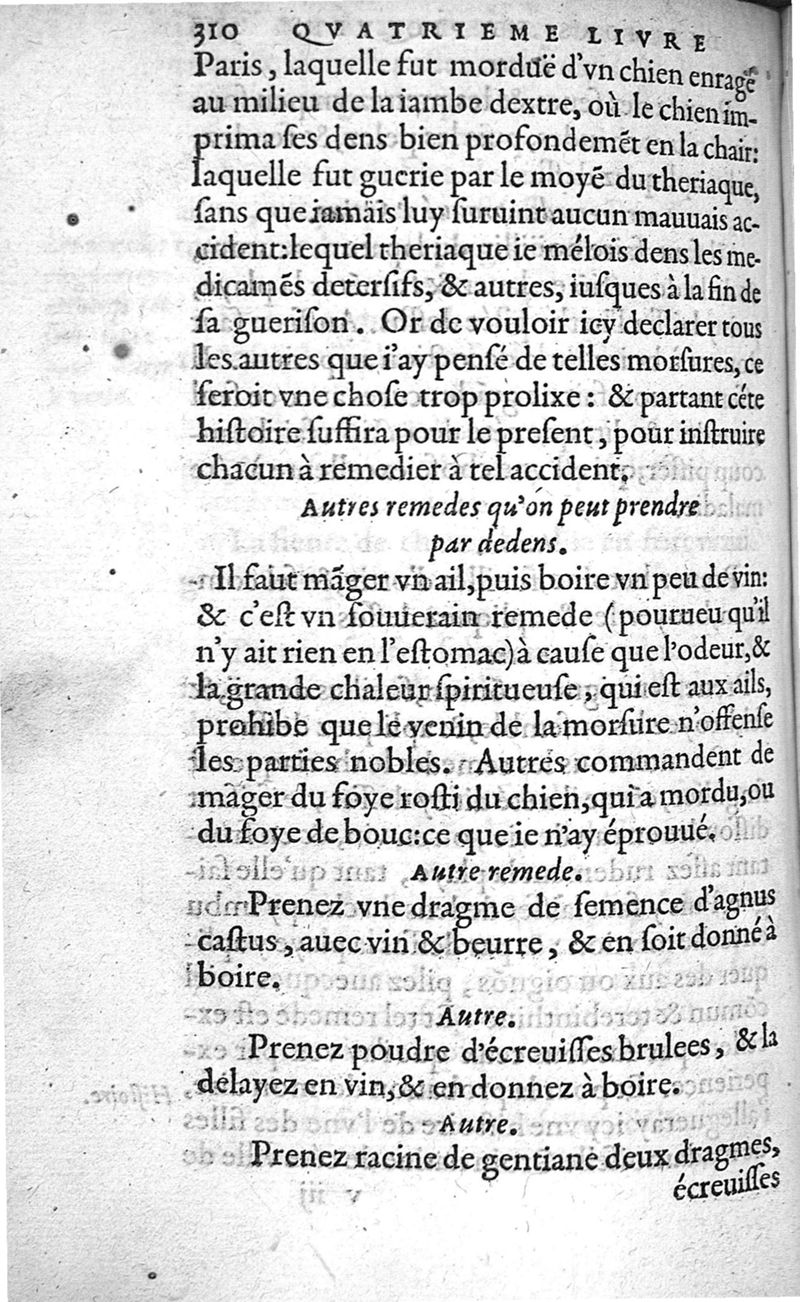 310 QVATRIEME LIVRE
Paris, laquelle fut morduë d'vn chien enragé
au milieu de la iambe dextre, où le chien im-
prima ſes dens bien profondemẽt en la chair:
laquelle fut guerie par le moyẽ du theriaque,
ſans que iamais luy ſuruint aucun mauuais ac-
cident: lequel theriaque ie mélois dens les me-
dicamẽs deterſifs, & autres, iuſques à la fin de
ſa gueriſon. Or de vouloir icy declarer tous
les autres que i'ay penſé de telles morſures, ce
ſeroit vne choſe trop prolixe: & partant céte
hiſtoire ſuffira pour le preſent, pour inſtruire
chacun à remedier à tel accident.
Autres remedes qu'on peut prendre
par dedens.
Il faut mãger vn ail, puis boire vn peu de vin:
& c'eſt vn ſouuerain remede (pourueu qu'il
n'y ait rien en l'eſtomac) à cauſe que l'odeur, &
la grande chaleur ſpiritueuſe, qui eſt aux ails,
prohibe que le venin de la morſure n'offenſe
les parties nobles. Autres commandent de
mãger du foye roſti du chien, qui a mordu, ou
du foye de bouc: ce que ie n'ay éprouué.
Autre remede.
Prenez vne dragme de ſemence d'agnus
caſtus, auec vin & beurre, & en ſoit donné à
boire.
Autre.
Prenez poudre d'écreuiſſes brulees, & la
délayez en vin, & en donnez à boire.
Autre.
Prenez racine de gentiane deux dragmes,
écreuiſſes